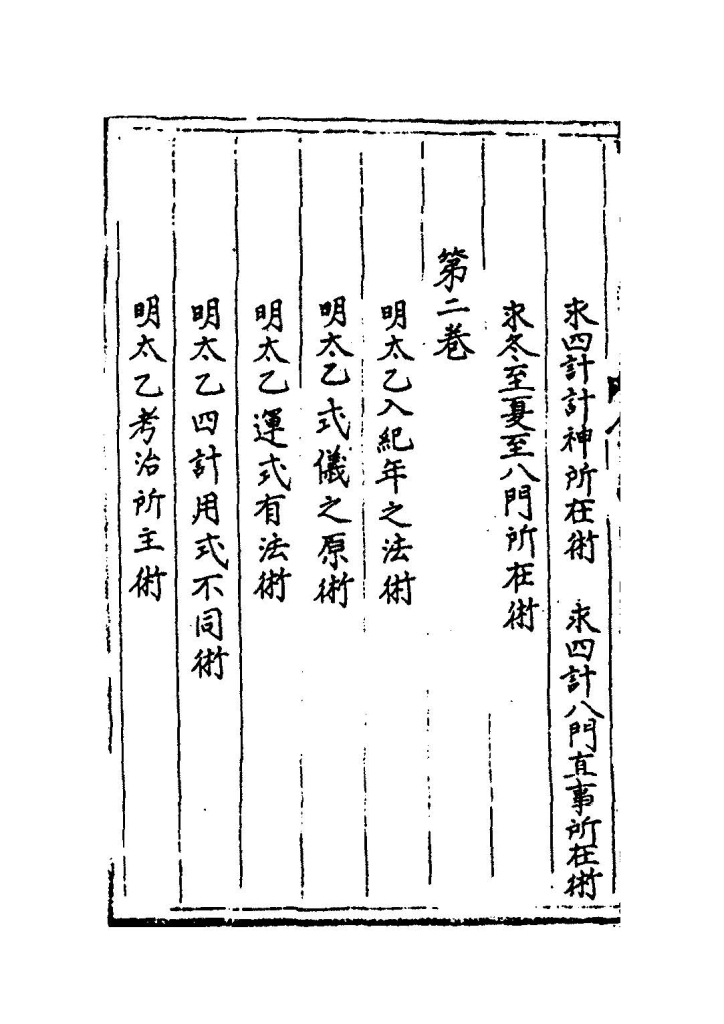 求四計計神所在術　求四計八門直事所在術
求冬至夏至八門所在術
第二卷
明太乙入紀年之法術
明太乙式儀之原術
明太乙運式有法術
明太乙四計用式不同術
明太乙考治所主術